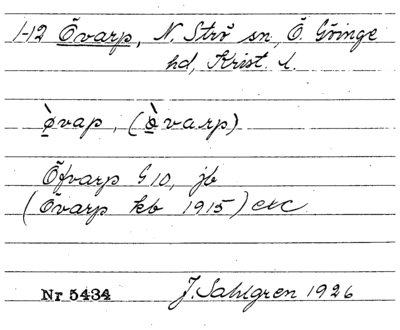 1-12 Övarp, N. Strö sn, Ö. Göinge
hd, Krist. l.
ò̱vap, (ò̱varp)
Öfvarp G10, jb
(Övarp kb 1915) etc
Nr 5434 J. Sahlgren 1926